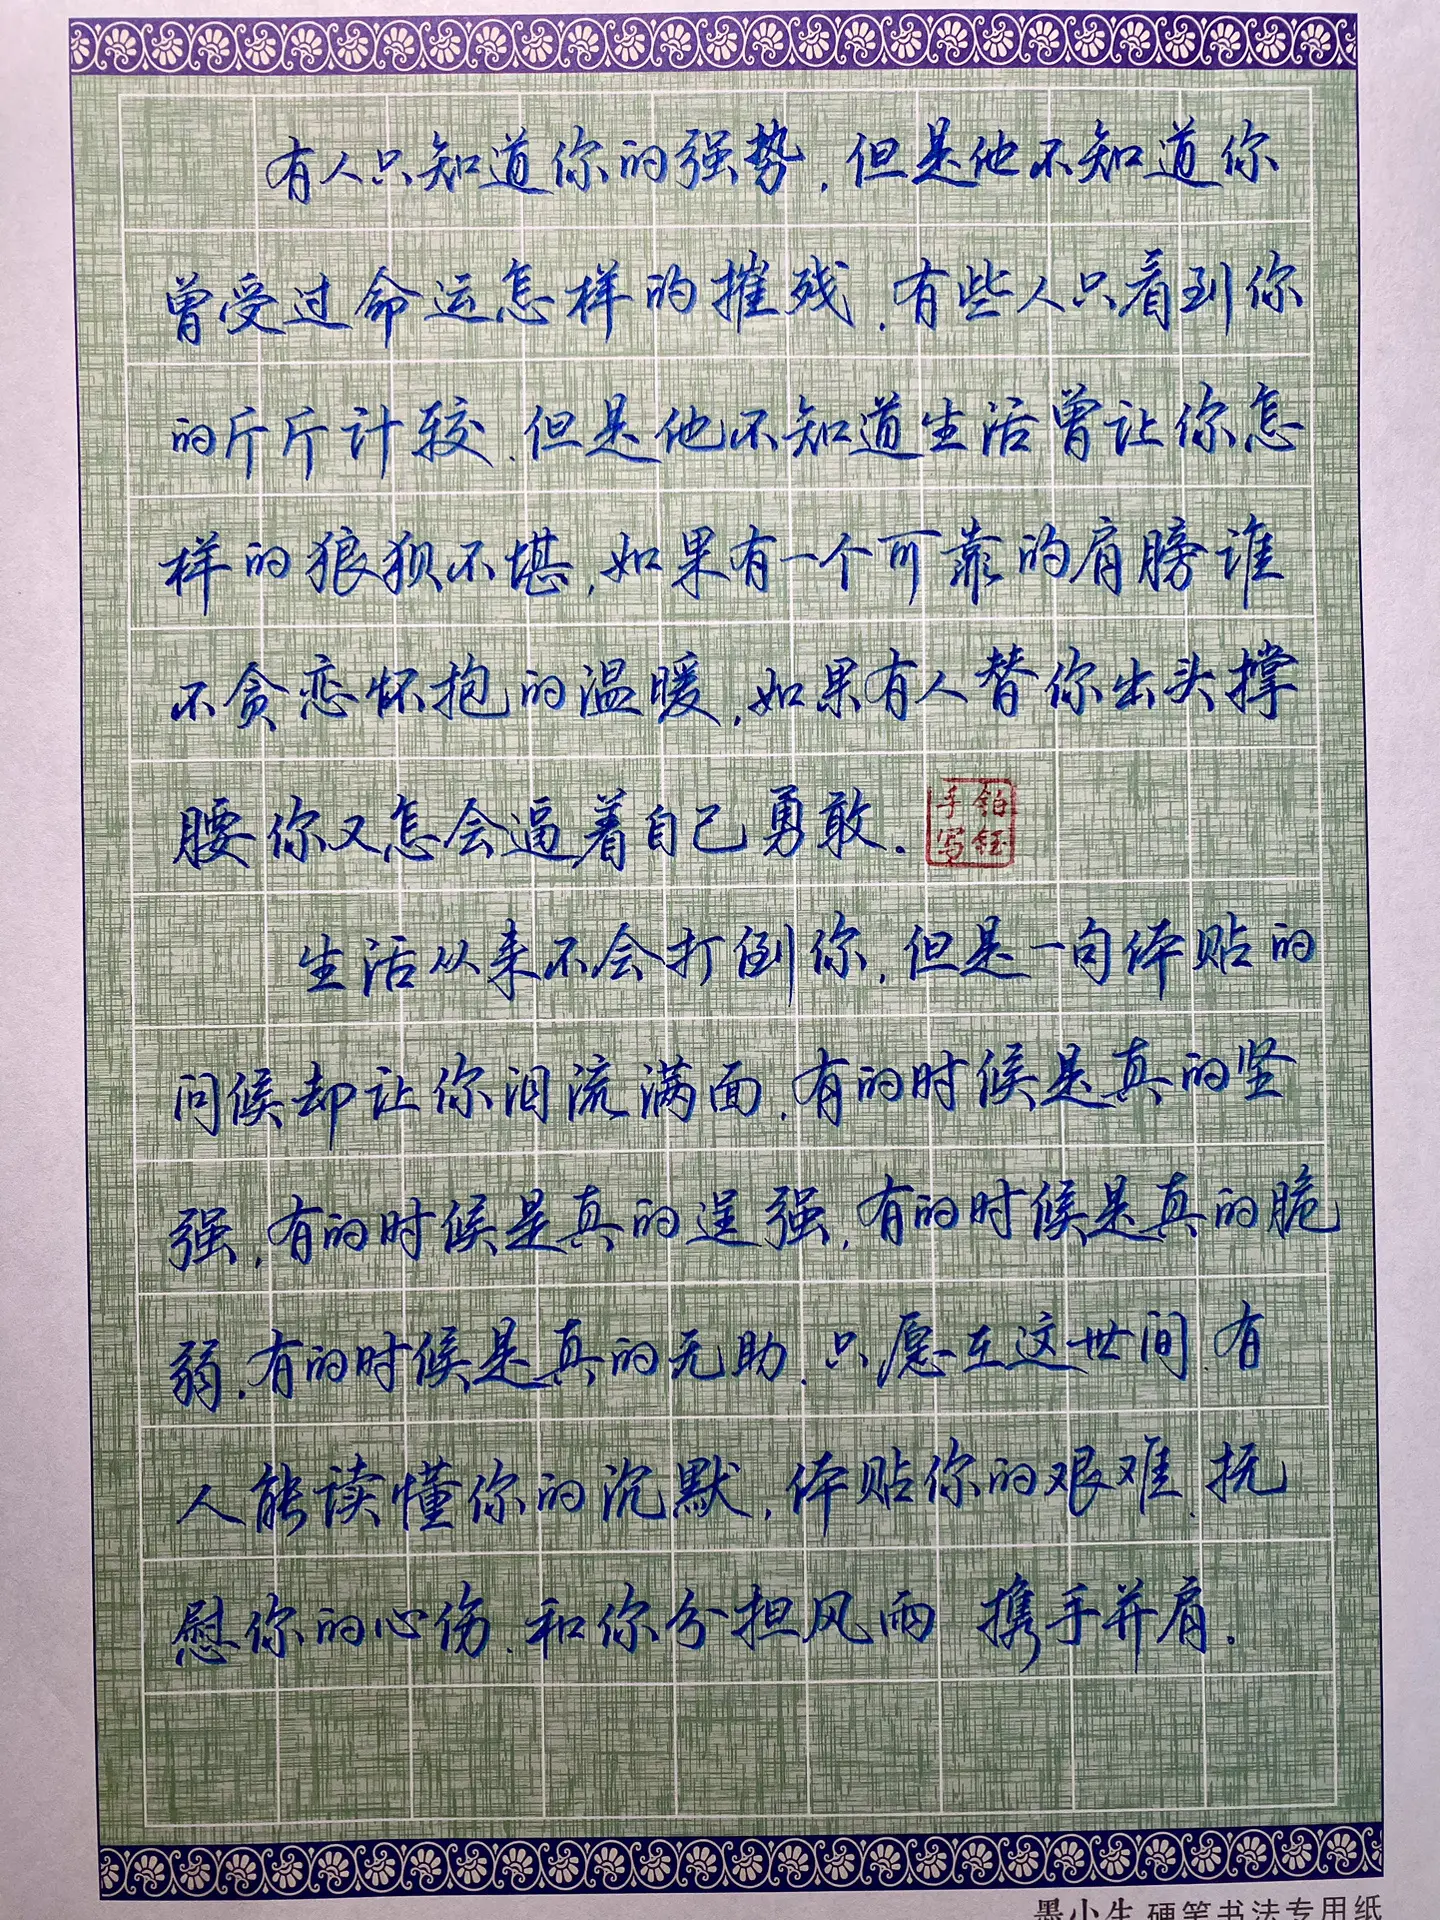 有人只知道你的强势,但是他不知道你
曾受过命运怎样的摧残,有些人只看到你
的斤斤计较,但是他不知道生活曾让你怎
样的狼狈不堪,如果有一个可靠的肩膀谁
不贪恋怀抱的温暖,如果有人替你出头撑
腰你又怎会逼着自己勇敢.
铂钰
手写
生活从来不会打倒你,但是一句体贴的
问候却让你泪流满面,有的时候是真的坚
强,有的时候是真的逞强,有的时候是真的脆
弱,有的时候是真的无助,只愿在这世间,有
人能读懂你的沉默,体贴你的艰难,抚
慰你的心伤,和你分担风雨 携手并肩.
墨小生 硬笔书法专用纸